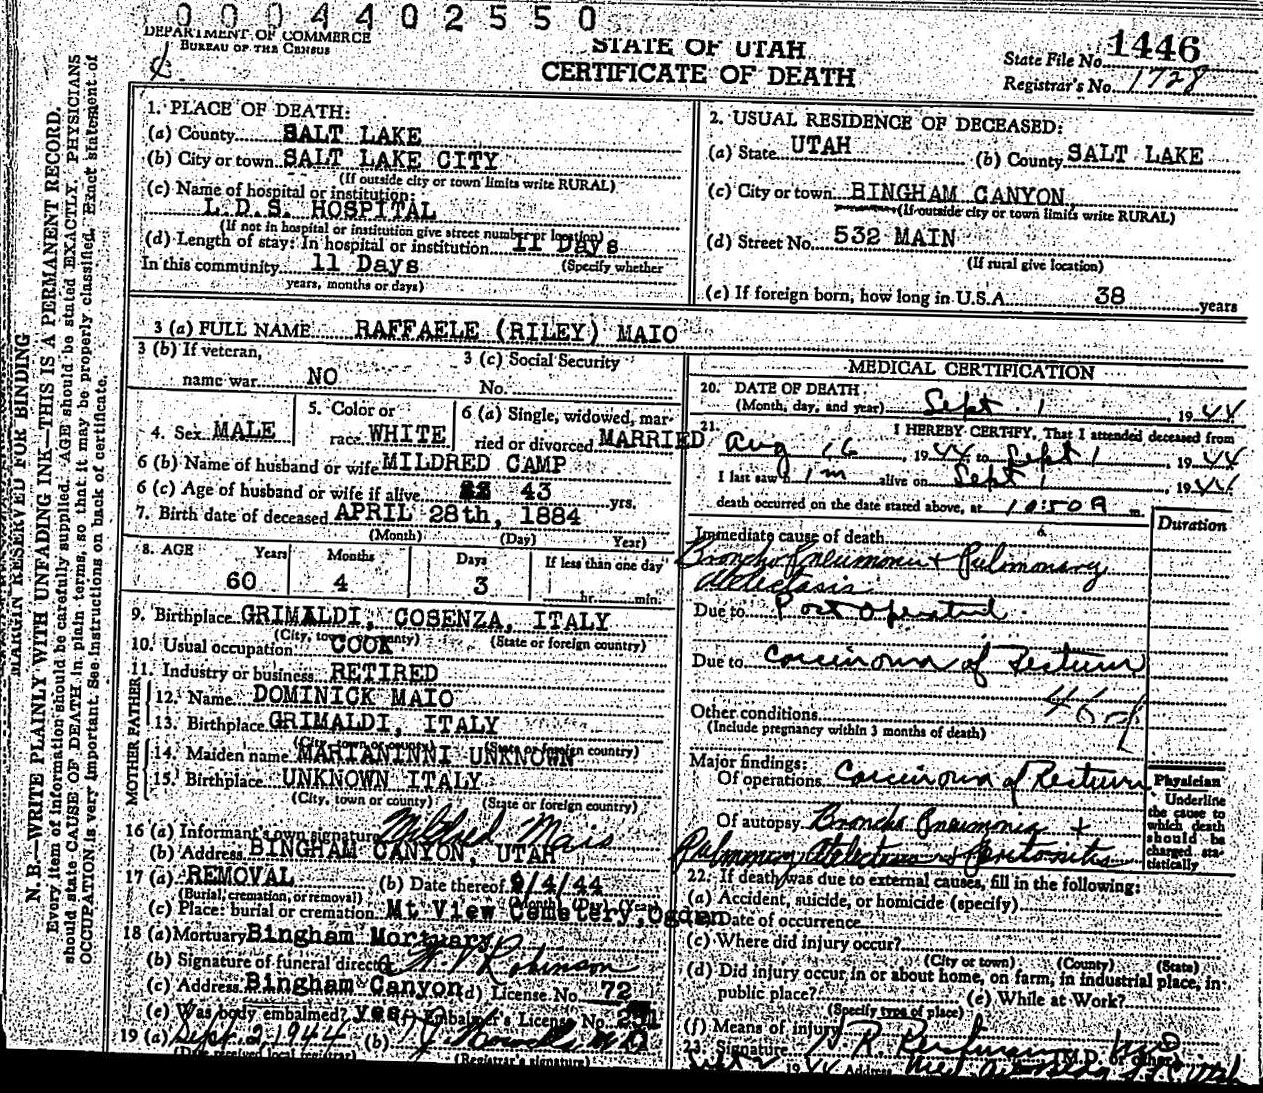 0 0 0 4 4 0 2 5 5 0
DEPARTMENT OF COMMERCE
BUREAU OF THE CENSUS
STATE OF UTAH
CERTIFICATE OF DEATH
State File No. 1446
Registrar's No. 1728
MARGIN RESERVED FOR BINDING
N. B.—WRITE PLAINLY WITH UNFADING INK—THIS IS A PERMANENT RECORD.
Every item of information should be carefully supplied. AGE should be stated EXACTLY. PHYSICIANS
should state CAUSE OF DEATH in plain terms, so that it may be properly classified. Exact statement of
OCCUPATION is very important. See instructions on back of certificate.
1. PLACE OF DEATH:
(a) County SALT LAKE
(b) City or town SALT LAKE CITY
(If outside city or town limits write RURAL)
(c) Name of hospital or institution:
L.D.S. HOSPITAL
(If not in hospital or institution give street number or location)
(d) Length of stay: In hospital or institution 11 Days
In this community 11 Days (Specify whether
years, months or days)
2. USUAL RESIDENCE OF DECEASED:
(a) State UTAH (b) County SALT LAKE
(c) City or town BINGHAM CANYON
(If outside city or town limits write RURAL)
(d) Street No. 532 MAIN
(If rural give location)
(e) If foreign born, how long in U.S.A. 38 years
3 (a) FULL NAME RAFFAELE (RILEY) MAIO
3 (b) If veteran, 3 (c) Social Security
name war NO No.
4. Sex MALE
5. Color or
race WHITE
6 (a) Single, widowed, mar-
ried or divorced MARRIED
6 (b) Name of husband or wife MILDRED CAMP
6 (c) Age of husband or wife if alive 43 yrs.
7. Birth date of deceased APRIL 28th, 1884
(Month) (Day) Year)
8. AGE Years Months Days If less than one day
60 4 3 hr. min.
9. Birthplace GRIMALDI, COSENZA, ITALY
(City, town or county) (State or foreign country)
10. Usual occupation COOK
11. Industry or business RETIRED
FATHER
12. Name DOMINICK MAIO
13. Birthplace GRIMALDI, ITALY
(City, town or county) (State or foreign country)
MOTHER
14. Maiden name MARIANINNI UNKNOWN
15. Birthplace UNKNOWN ITALY
(City, town or county) (State or foreign country)
16 (a) Informant's own signature Mildred Maio
(b) Address BINGHAM CANYON, UTAH
17 (a) REMOVAL (b) Date thereof 9/4/44
(Burial, cremation, or removal) (Month) (Day) (Year)
(c) Place: burial or cremation Mt View Cemetery, Ogden
18 (a) Mortuary Bingham Mortuary
(b) Signature of funeral director Robinson
(c) Address Bingham Canyon (d) License No. 72
(e) Was body embalmed? yes Embalmer's License No.
19 (a) Sept. 2, 1944 (b) M D
(Registrar's signature)
MEDICAL CERTIFICATION
20. DATE OF DEATH
(Month, day, and year) Sept. 1, 1944
21. I HEREBY CERTIFY, That I attended deceased from
Aug 16, 1944 to Sept 1, 1944
I last saw h im alive on Sept 1, 1944
death occurred on the date stated above, at 10:50 A m.
Duration
Immediate cause of death
Broncho Pneumonia + Pulmonary
atelectasis
Due to Post Operative
Due to Carcinoma of Rectum
Other conditions
(Include pregnancy within 3 months of death)
Major findings:
Of operations Carcinoma of Rectum
Of autopsy Broncho Pneumonia +
Pulmonary Atelectasis + Peritonitis
Physician
Underline
the cause to
which death
should be
charged sta-
tistically
22. If death was due to external causes, fill in the following:
(a) Accident, suicide, or homicide (specify)
Date of occurrence
(c) Where did injury occur?
(City or town) (County) (State)
(d) Did injury occur in or about home, on farm, in industrial place, in
public place? (e) While at Work?
(Specify type of place)
(f) Means of injury
23. Signature (M.D. or other)
1944 Address